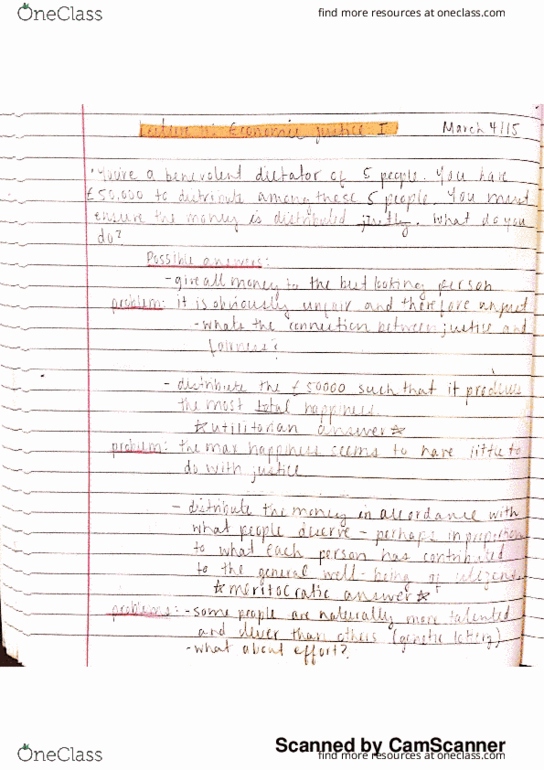 OneClass
find more resources at oneclass.com
Economic Justice I March 4/15
You're a benevolent dictator of 5 people. You have
£50,000 to distribute among these 5 people. You must
ensure the money is distributed justly. What do you
do?
Possible answers:
- give all money to the best looking person
problem: it is obviously unfair and therefore unjust
- whats the connection between justice and
fairness?
- distribute the £50000 such that it produces
the most total happiness
☆utilitarian answer☆
problem: the max happiness seems to have little to
do with justice
- distribute the money in accordance with
what people deserve - perhaps in proportion
to what each person has contributed
to the general well-being of
☆meritocratic answer☆
problems: - some people are naturally more talented
and clever than others (genetic lottery)
- what about effort?
Scanned by CamScanner
OneClass
find more resources at oneclass.com